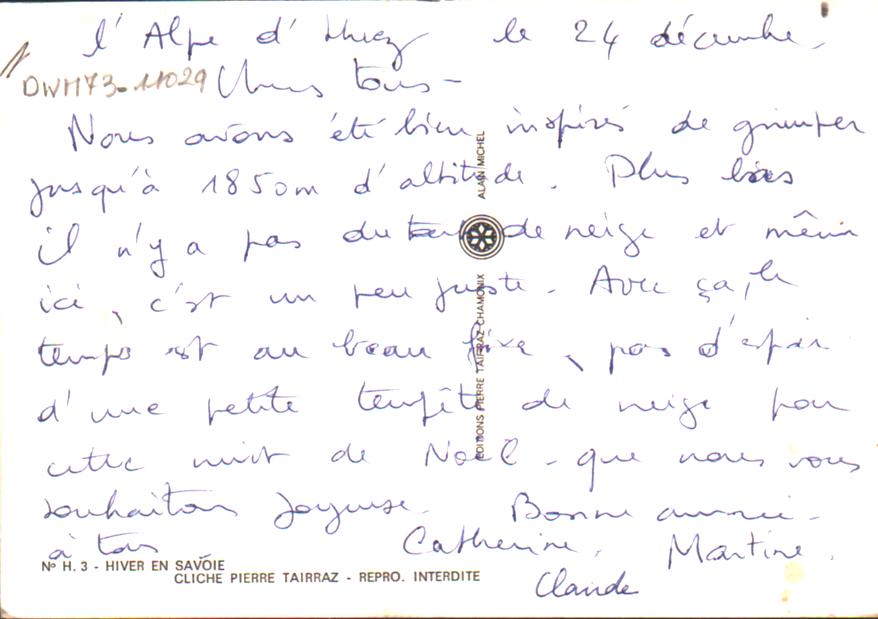 l'Alpe d'Huez le 24 décembre.
DWM73-11029
Chers tous -
Nous avons été bien inspirés de grimper
jusqu'à 1850m d'altitude. Plus bas
il n'y a pas du tout de neige et même
ici, c'est un peu juste. Avec ça, le
temps est au beau fixe, pas d'espoir
d'une petite tempête de neige pour
cette nuit de Noël - que nous vous
souhaitons joyeuse. Bonne année -
à tous Catherine, Martine,
Claude
N° H. 3 - HIVER EN SAVOIE
CLICHE PIERRE TAIRRAZ - REPRO. INTERDITE
EDITIONS PIERRE TAIRRAZ-CHAMONIX
ALAIN MICHEL